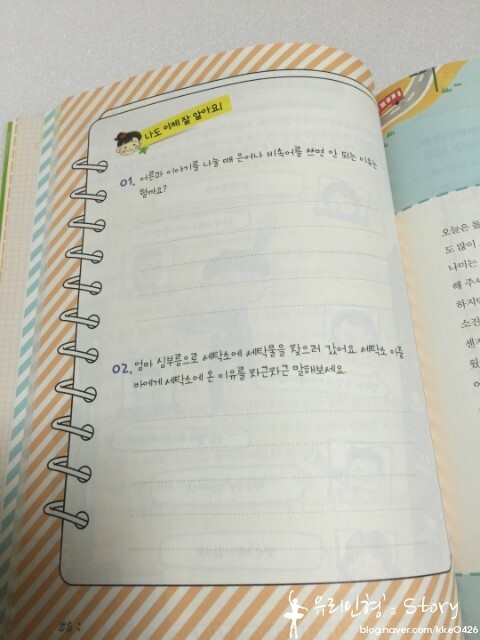 나도 이제 잘 알아요!
01. 어른과 이야기를 나눌 때 은어나 비속어를 쓰면 안 되는 이유는
뭘까요?
02. 엄마 심부름으로 세탁소에 세탁물을 찾으러 갔어요. 세탁소 아줌
마에게 세탁소에 온 이유를 차근차근 말해보세요.
오늘은 동
도 많이
나미는
해 주시
하지만
소진
센지
웠
유리인형's Story
blog.naver.com/kke0426